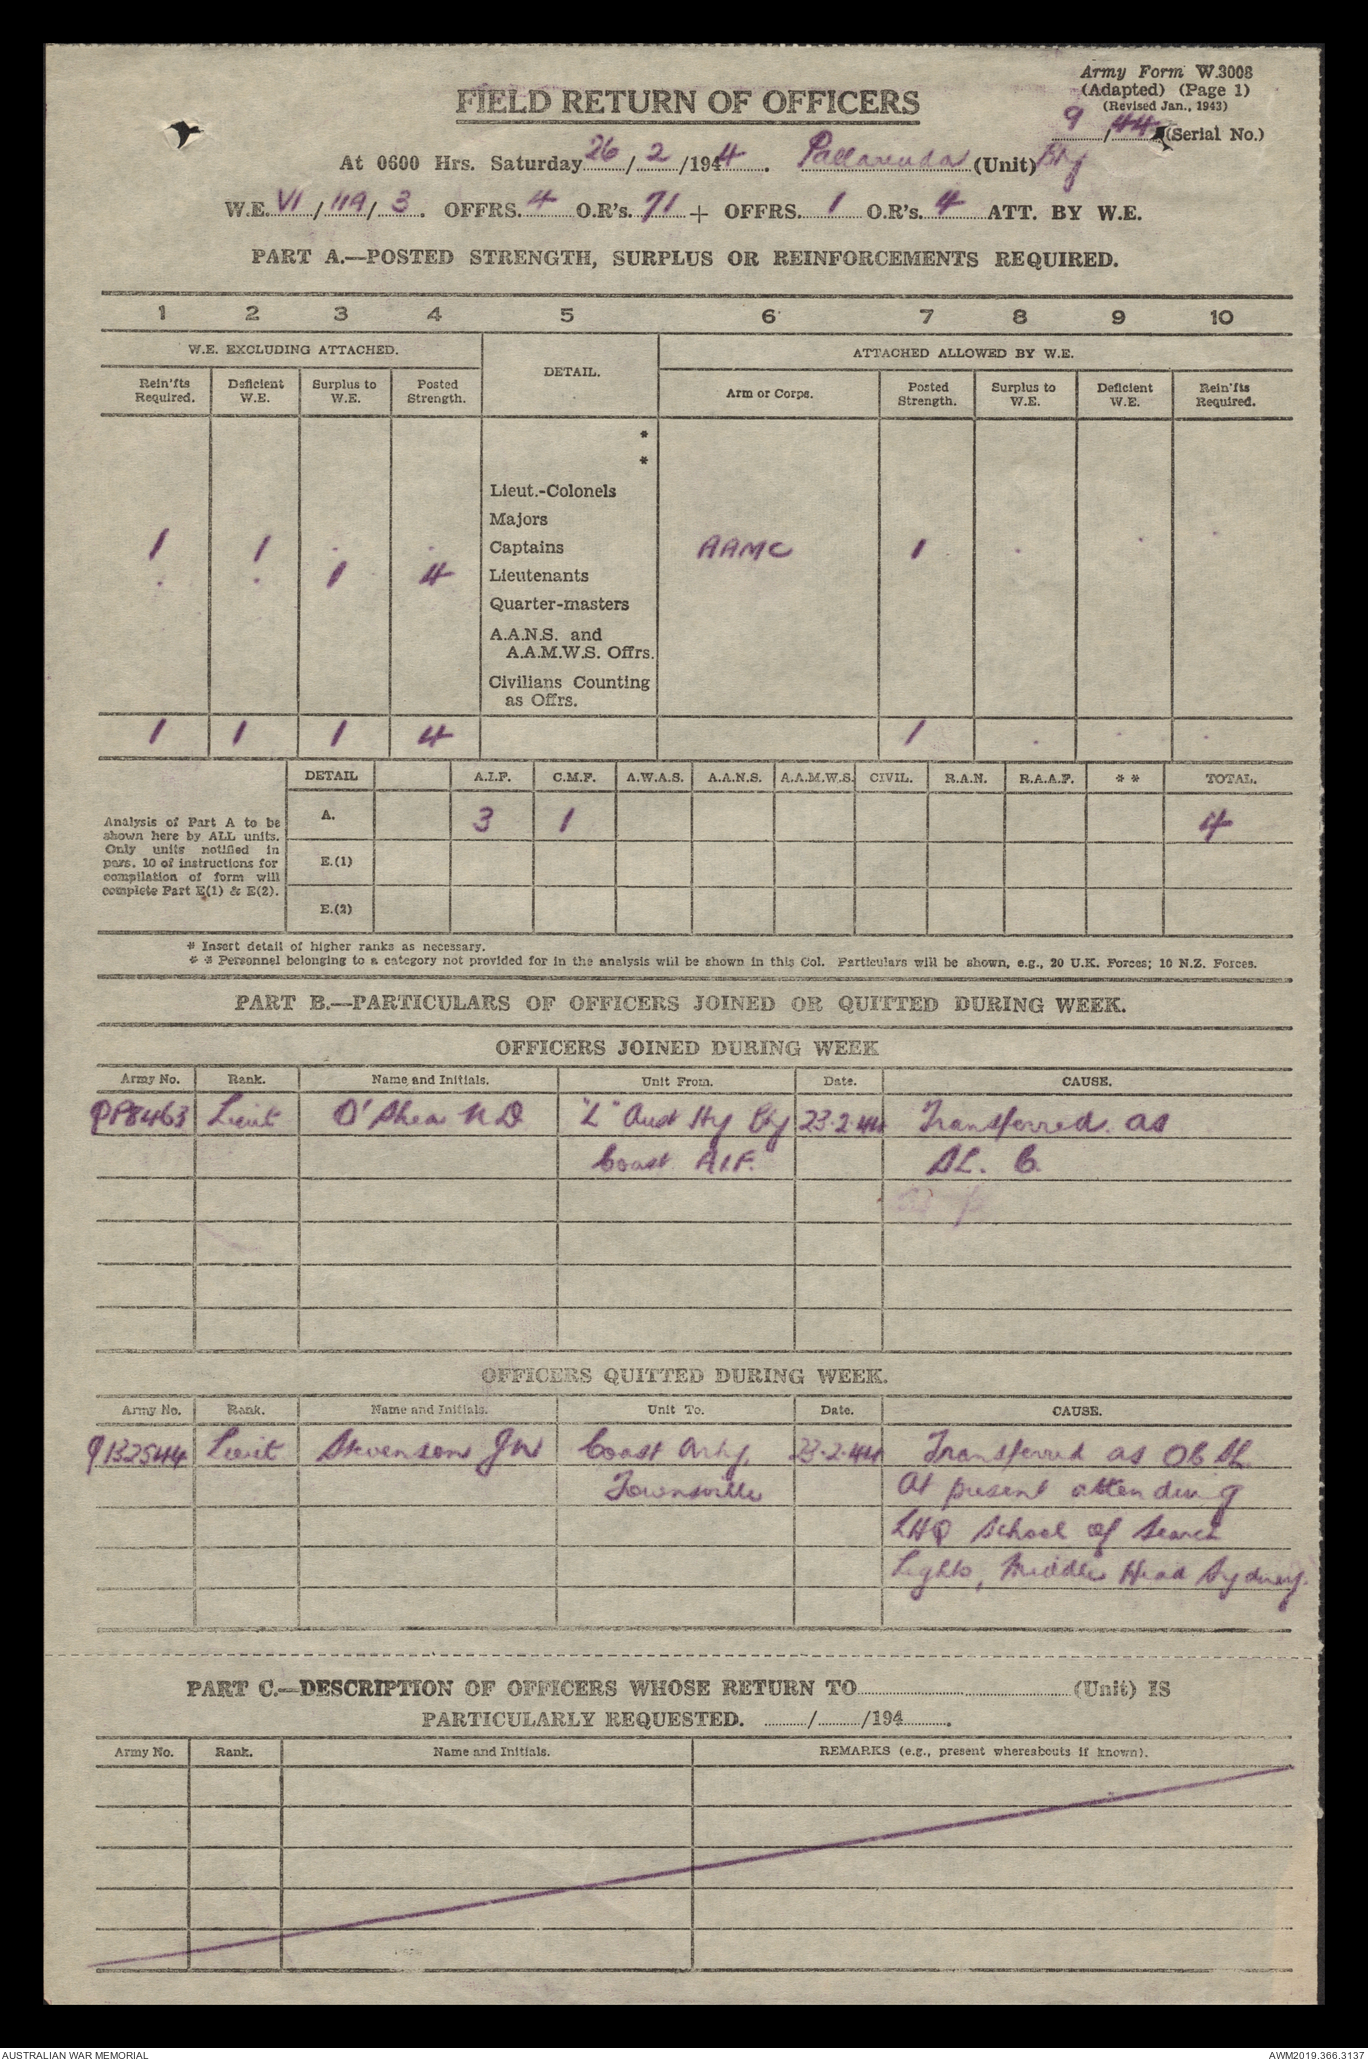 Army Form W.3008
(Adapted) (Page 1)
(Revised Jan., 1943)
FIELD RETURN OF OFFICERS
9/44 (Serial No.)
At 0600 Hrs. Saturday 26/2/1944. Pallarenda (Unit) Bty
W.E. VI/119/3. OFFRS. 4 O.R's. 71 + OFFRS. 1 O.R's. 4 ATT. BY W.E.
PART A.—POSTED STRENGTH, SURPLUS OR REINFORCEMENTS REQUIRED.
1 2 3 4 5 6 7 8 9 10
W.E. EXCLUDING ATTACHED. DETAIL. ATTACHED ALLOWED BY W.E.
Rein'fts Required. Deficient W.E. Surplus to W.E. Posted Strength. Arm or Corps. Posted Strength. Surplus to W.E. Deficient W.E. Rein'fts Required.
*
*
Lieut.-Colonels
Majors
1 1 . . Captains AAMC 1 . . .
. . 1 4 Lieutenants
Quarter-masters
A.A.N.S. and
A.A.M.W.S. Offrs.
Civilians Counting
as Offrs.
1 1 1 4 1 . . .
DETAIL A.I.F. C.M.F. A.W.A.S. A.A.N.S. A.A.M.W.S. CIVIL. R.A.N. R.A.A.F. * * TOTAL.
Analysis of Part A to be
shown here by ALL units.
Only units notified in
pars. 10 of instructions for
compilation of form will
complete Part E(1) & E(2).
A. 3 1 4
E.(1)
E.(2)
* Insert detail of higher ranks as necessary.
* * Personnel belonging to a category not provided for in the analysis will be shown in this Col. Particulars will be shown, e.g., 20 U.K. Forces; 10 N.Z. Forces.
PART B.—PARTICULARS OF OFFICERS JOINED OR QUITTED DURING WEEK.
OFFICERS JOINED DURING WEEK
Army No. Rank. Name and Initials. Unit From. Date. CAUSE.
QP8463 Lieut O'Shea N D "L" Aust Hy Bty 23.2.44 Transferred as
Coast A.I.F. SL. O.
OFFICERS QUITTED DURING WEEK.
Army No. Rank. Name and Initials. Unit To. Date. CAUSE.
Q132544 Lieut Stevenson J W Coast Arty 23.2.44 Transferred as OC SL
Townsville At present attending
LHQ School of Search
Lights, Middle Head Sydney.
PART C.—DESCRIPTION OF OFFICERS WHOSE RETURN TO (Unit) IS
PARTICULARLY REQUESTED. / /194 .
Army No. Rank. Name and Initials. REMARKS (e.g., present whereabouts if known).
AUSTRALIAN WAR MEMORIAL AWM2019.366.3137